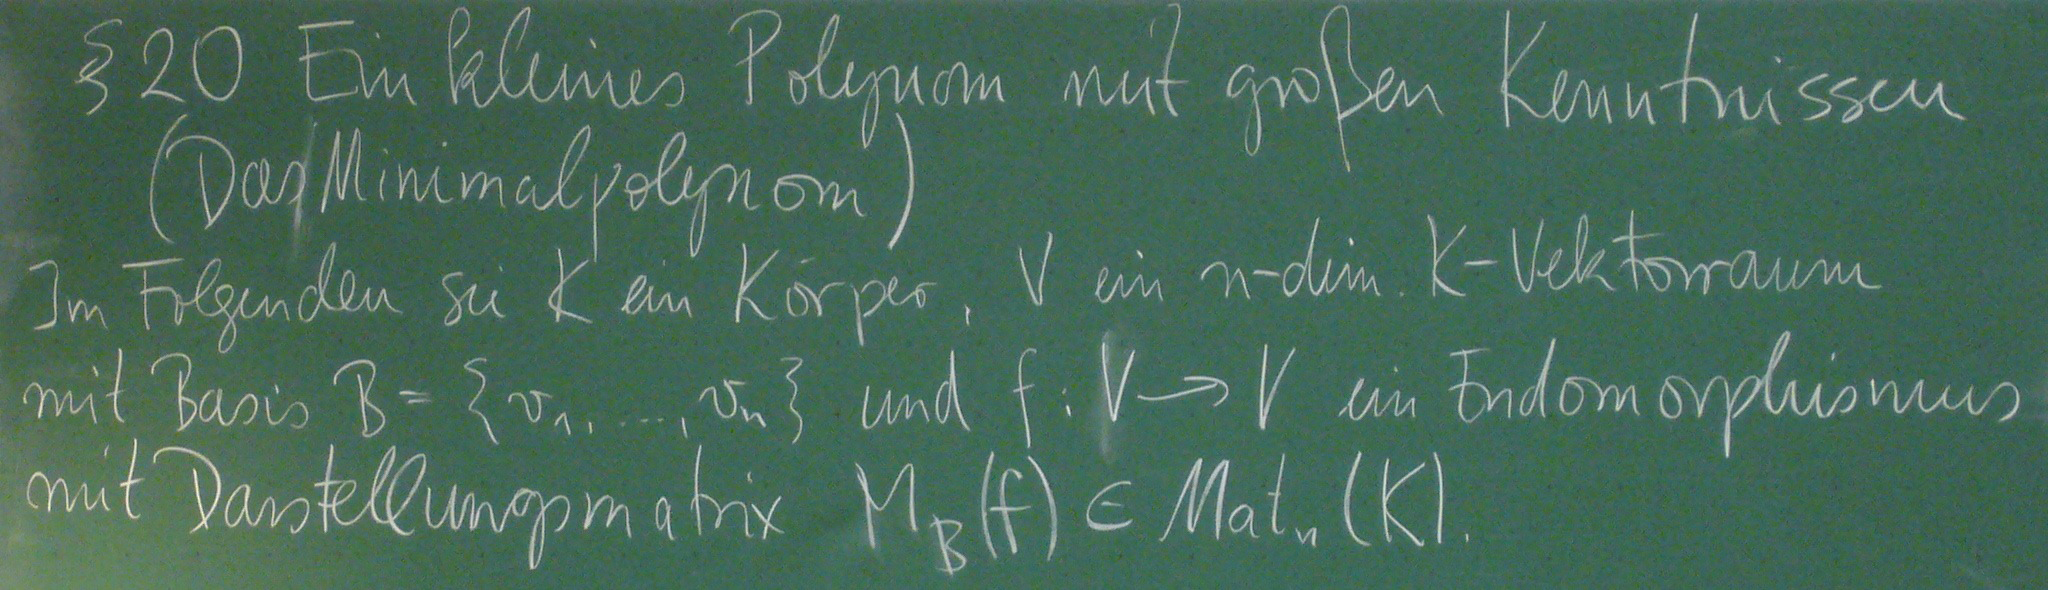 §20 Ein kleines Polynom mit großen Kenntnissen
(Das Minimalpolynom)
Im Folgenden sei K ein Körper, V ein n-dim. K-Vektorraum
mit Basis B = {v₁, ..., vₙ} und f : V → V ein Endomorphismus
mit Darstellungsmatrix M_B(f) ∈ Matₙ(K).